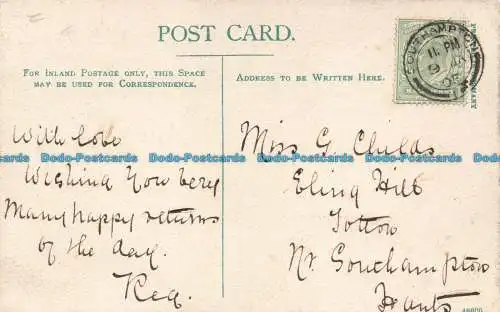 POST CARD.
FOR INLAND POSTAGE ONLY, THIS SPACE
MAY BE USED FOR CORRESPONDENCE.
ADDRESS TO BE WRITTEN HERE.
SOUTHAMPTON
11 PM
With love
Wishing You very
Many happy returns
of the day.
Reg.
Miss G Childs
Eling Hill
Totton
Nr. Southampton
Hants
Dodo-Postcards Dodo-Postcards Dodo-Postcards Dodo-Postcards Dodo-Postcards Dodo-Postcards